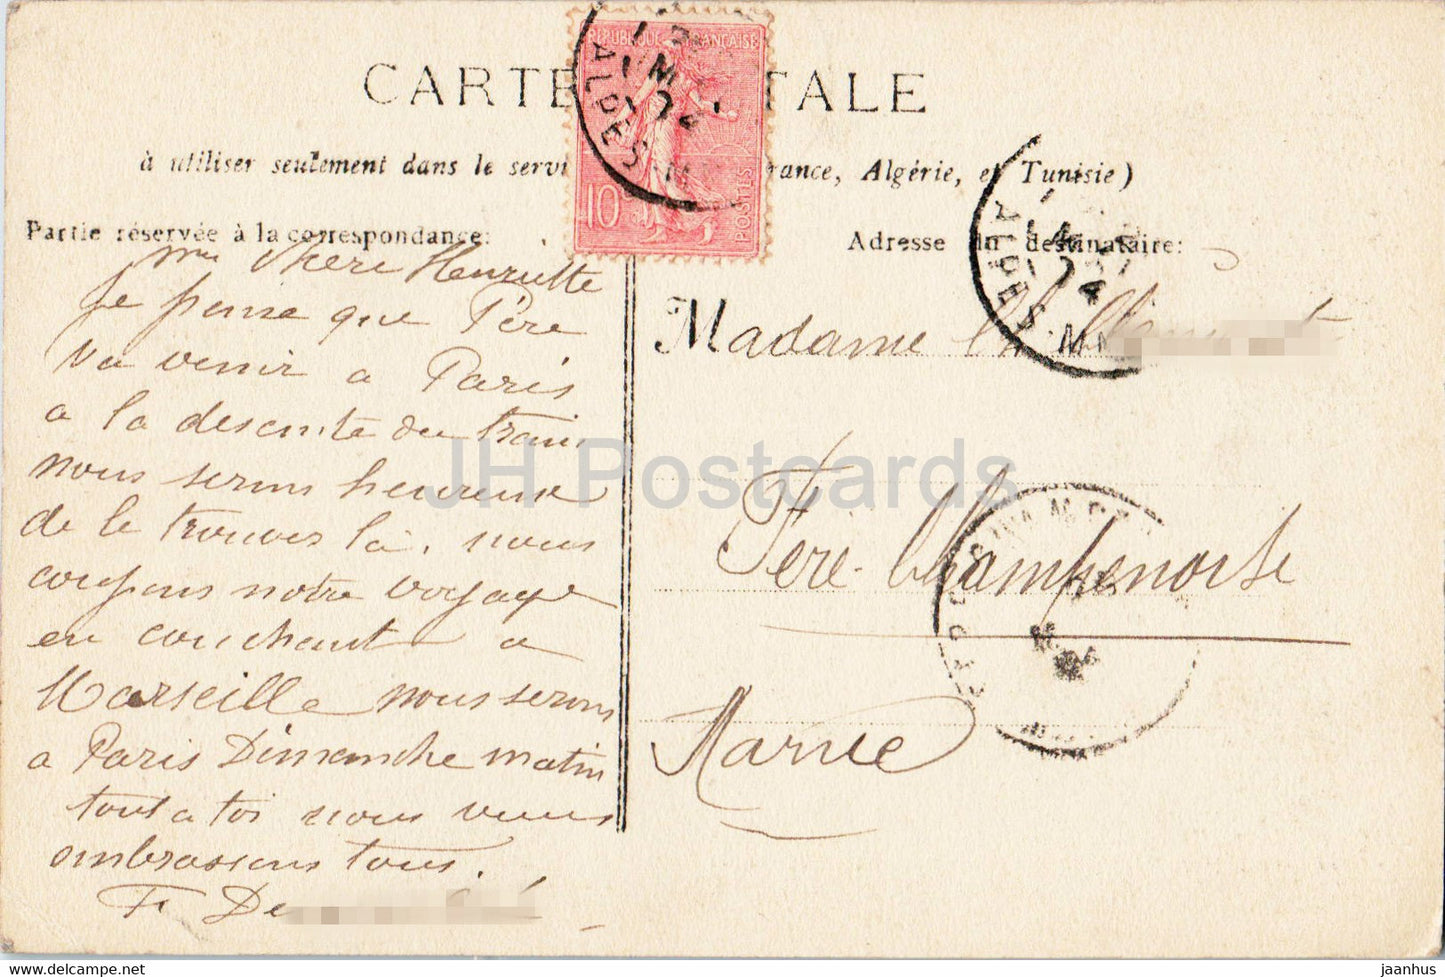 CARTE TALE
à utiliser seulement dans le servi rance, Algérie, et Tunisie)
REPUBLIQUE FRANÇAISE
10c
POSTES
ALPES
Partie réservée à la correspondance:
ma chere Henriette
Je pense que Père
va venir a Paris
a la descente du train
nous serons heureux
de le trouver là, nous
coupons notre voyage
en couchant a
Marseille nous serons
a Paris Dimanche matin
tout a toi nous vous
embrassons tous.
F. De
Adresse du destinataire:
ALPES
Madame
Fère-Champenoise
Marne
JH Postcards
www.hippostcard.com jaanhus